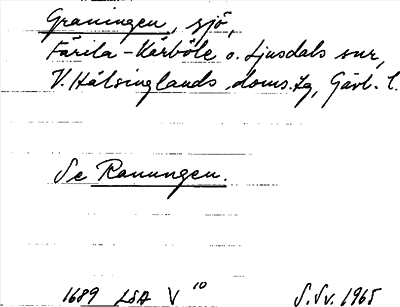 Graningen, sjö,
Färila-Kårböle o. Ljusdals snr,
V. Hälsinglands doms.lg, Gävl. l.
Se Ranungen.
1689 LSA V 10 S.Sv. 1965